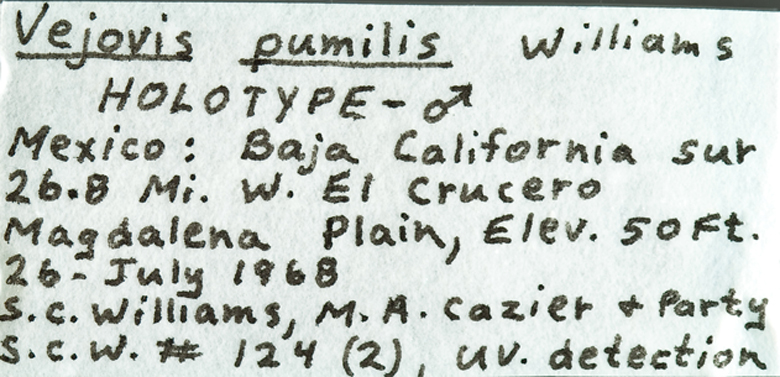 Vejovis pumilis Williams
HOLOTYPE - ♂
Mexico: Baja California sur
26.8 Mi. W. El Crucero
Magdalena Plain, Elev. 50 Ft.
26-July 1968
S.C. Williams, M.A. Cazier + Party
S.C.W. # 124 (2), UV. detection